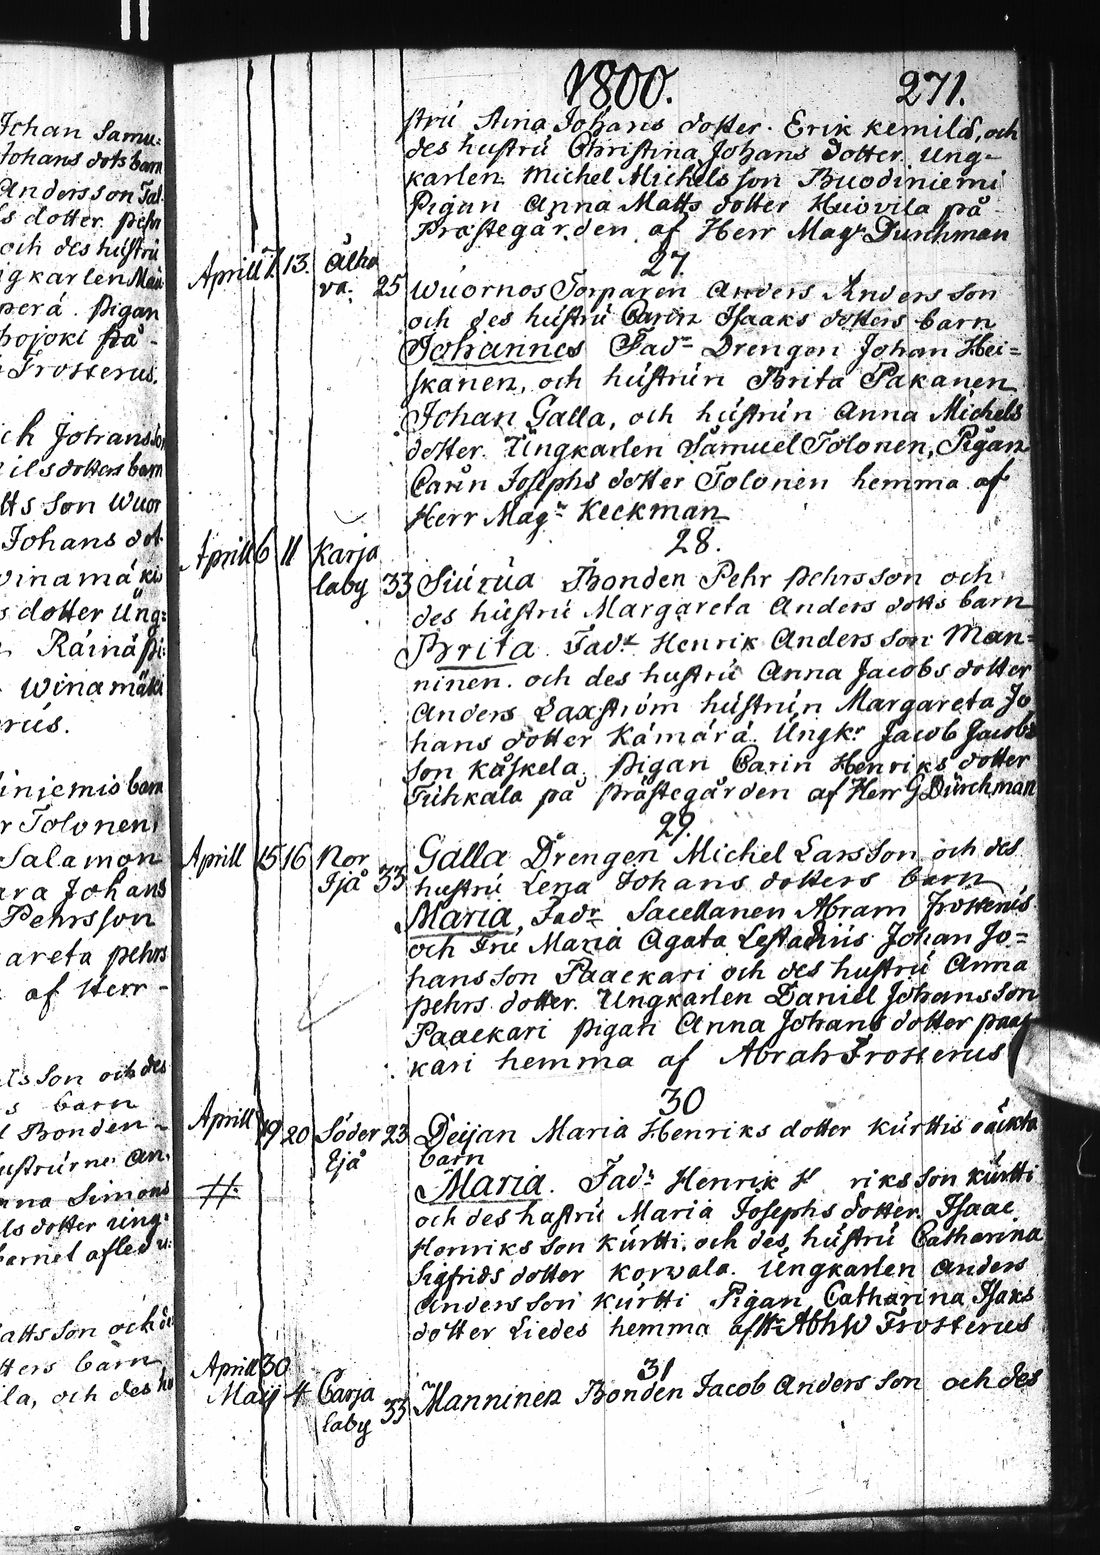 1800. 271.
Johan Samu=
Johans dots barn
Andersson Tal-
s dotter pehr
och des hustru
gkarlen
perá. pigan
hojoki på -
Frosterus.
ch Johansson
ils dotters barn
tts son Wuor
Johans dot
vinamäkis
s dotter Ung=
Räinä pi-
Winamäki
rus.
iniemis barn
r Tolonen,
Salamon
ara Johans
Pehrsson
areta pehrs
af Herr -
ls son och des
s barn
Bonden -
ustrurne An-
nna Simons
ls dotter Ung=
barnet afled
atts son och de
tters barn
la, och des hu
stru Stina Johans dotter. Erik Kemilä, och
des hustru Christina Johans dotter. Ung-
karlen Michel Michels son Buodiniemi
Pigan Anna Matts dotter Huovila på
Prästegården af Herr Magr Durchman
27.
Aprill 7. 13. Alho
va. 25 Wuornos Torparen Anders Anders son
och des hustru Carin Isaaks dotters barn
Johannes Fadr Drengen Johan Hei=
skanen, och hustrun Brita Pakanen
Johan Galla, och hustrun Anna Michels
dotter. Ungkarlen Samuel Tolonen, Pigan
Carin Josephs dotter Tolonen hemma af
Herr Magr Keckman
28.
Aprill 6 11 Karja
laby 33 Siurua Bonden Pehr Pehrsson och
des hustru Margareta Anders dotts barn
Brita. Fadr Henrik Anders son Man=
ninen. och des hustru Anna Jacobs dotter
Anders Laxström hustrun Margareta Jo
hans dotter Kämärä. Ungkr Jacob Jacobs
son Kaskela, pigan Carin Henriks dotter
Tuhkala på prästegården af Herr G Durchman
29.
Aprill 15 16 Nor
Ijå 33 Galla Drengen Michel Larsson och des
hustru Lena Johans dotters barn
Maria, Fadr Sacellanen Abram Frosterus
och Fru Maria Agata Lestadius Johan Jo=
hansson Paaekari och des hustru Anna
pehrs dotter. Ungkarlen Daniel Johansson
Paaekari pigan Anna Johans dotter paae
kari hemma af Abrah Frosterus
30
Aprill 19 20 Söder 23 Deijan Maria Henriks dotter Kurttis oäkta
Ijå barn
#. Maria. Fadr Henrik H riks son Kurtti
och des hustru Maria Josephs dotter. Isaac
Henriks son Kurtti. och des hustru Catharina
Sigfrids dotter Korwala. Ungkarlen Anders
Andersson Kurtti Pigan Catharina Isaks
dotter Liedes hemma af Abhm Frosterus
31
Aprill 30
Maij 4 Carja
laby 33 Manninen Bonden Jacob Anders son och des